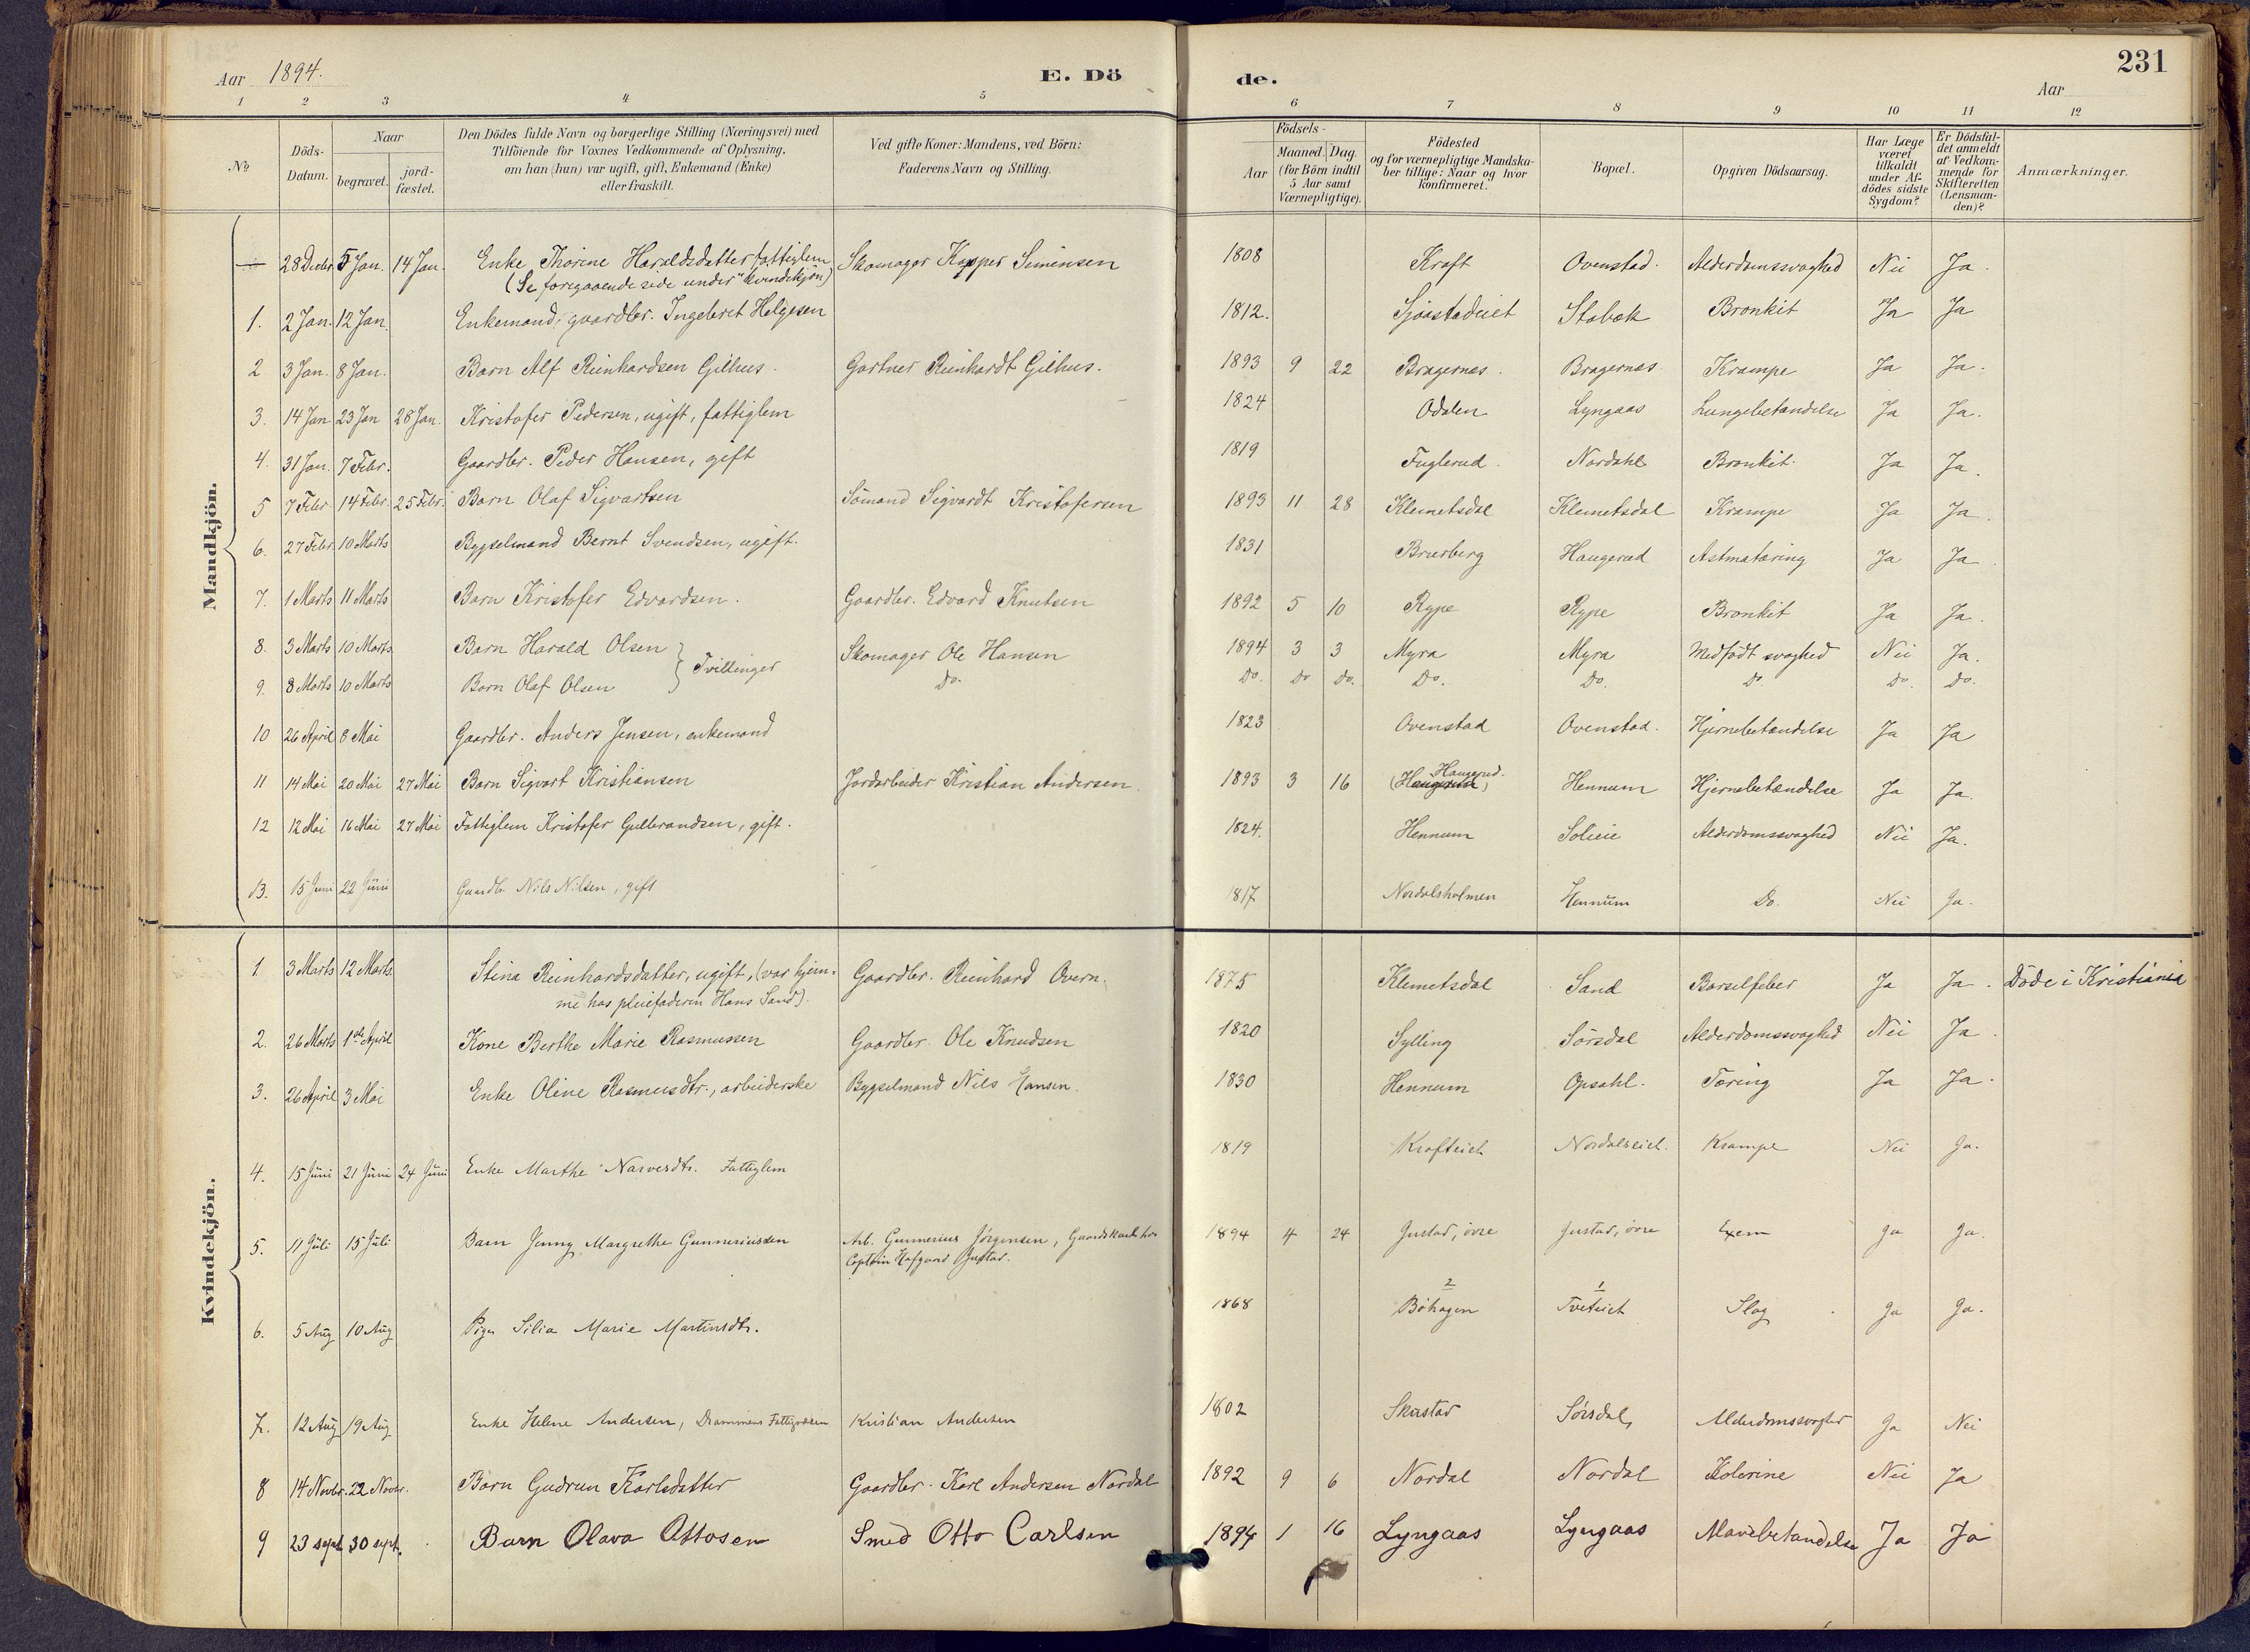 Aar 1894. E. Dö de. 231
Aar
1 2 3 4 5 6 7 8 9 10 11 12
No
Döds-Datum.
Naar
begravet.
jord-fæstet.
Den Dödes fulde Navn og borgerlige Stilling (Næringsvei) med
Tilföiende for Voxnes Vedkommende af Oplysning,
om han (hun) var ugift, gift, Enkemand (Enke)
eller fraskilt.
Ved gifte Koner: Mandens, ved Börn:
Faderens Navn og Stilling.
Födsels-
Aar
Maaned. Dag.
(for Börn indtil
5 Aar samt
Værnepligtige).
Födested
og for værnepligtige Mandska-
ber tillige: Naar og hvor
konfirmeret.
Bopæl.
Opgiven Dödsaarsag.
Har Læge
været
tilkaldt
under Af-
dödes sidste
Sygdom?
Er Dödsfal-
det anmeldt
af Vedkom-
mende for
Skifteretten
(Lensman-
den)?
Anmærkninger.
Mandkjön.
— 28 Decbr 5 Jan. 14 Jan. Enke Thorine Haraldsdatter, fattiglem Skomager Kasper Simensen 1808 Kraft Ovenstad. Alderdomssvaghed Nei Ja.
(Se foregaaende side under "kvindekjøn)
1. 2 Jan. 12 Jan. Enkemand, gaardbr. Ingebret Helgesen 1812. Sjaastadeiet Stabæk Bronkit Ja Ja
2 3 Jan. 8 Jan. Barn Alf Reinhardsen Gilhus. Gartner Reinhardt Gilhus. 1893 9 22 Bragernæs. Bragernæs Krampe Ja Ja.
3. 14 Jan 23 Jan 28 Jan. Kristofer Pedersen, ugift, fattiglem 1824 Odalen Lyngaas Lungebetændelse Ja Ja.
4. 31 Jan. 7 Febr. Gaardbr. Peder Hansen, gift 1819 Fuglerud. Nordahl Bronkit. Ja Ja.
5 7 Febr 14 Febr. 25 Febr. Barn Olaf Sigvartsen Sömand Sigvardt Kristofersen 1893 11 28 Klemetsdal Klemetsdal Krampe Ja Ja.
6. 27 Febr 10 Marts Bygselmand Bernt Svendsen, ugift. 1831 Bruerberg Haugerud Astmatæring Ja Ja
7. 1 Marts 11 Marts Barn Kristofer Edvardsen. Gaardbr. Edvard Knutsen 1892 5 10 Rype Rype Bronkit Ja Ja.
8. 3 Marts 10 Marts Barn Harald Olsen } Tvillinger Skomager Ole Hansen 1894 3 3 Myra Myra Medfödt svaghed Nei Ja.
9. 8 Marts 10 Marts Barn Olaf Olsen Do. Do. Do Do. Do. Do. Do. Do. Do.
10 26 April 8 Mai Gaardbr. Anders Jensen, enkemand 1823 Ovenstad Ovenstad. Hjernebetændelse Ja Ja
11 14 Mai 20 Mai 27 Mai Barn Sigvart Kristiansen Jordarbeider Kristian Andersen. 1893 3 16 (Haugerud) Haugerud. Hennum Hjernebetændelse Ja Ja.
12 12 Mai 16 Mai 27 Mai Fattiglem Kristofer Gulbrandsen, gift. 1824. Hennum Solieie Alderdomssvaghed Nei Ja.
13. 15 Juni 22 Juni Gaardbr. Nils Nilsen, gift 1817 Nordalsholmen Hennum Do. Nei Ja.
Kvindekjön.
1 3 Marts 12 Marts Stina Reinhardsdatter, ugift, (var hjem- Gaardbr. Reinhard Overn. 1875 Klemetsdal Sand Barselfeber Ja Ja. Döde i Kristiania
me hos pleiefaderen Hans Sand).
2. 26 Marts 1ste April Kone Berthe Marie Rasmussen Gaardbr. Ole Knudsen 1820 Sylling Sörsdal Alderdomssvaghed Nei Ja.
3. 26 April 3 Mai Enke Oline Rasmusdtr., arbeiderske Bygselmand Nils Hansen. 1830 Hennum Opsahl. Tæring Ja Ja.
4. 15 Juni 21 Juni 24 Juni Enke Marthe Narvesdtr. Fattiglem 1819 Krafteiet Nordalseiet. Krampe Nei Ja.
5. 11 Juli 15 Juli Barn Jenny Margrethe Gunneriussen Arb. Gunnerius Jörgensen, Gaardskarl hos 1894 4 24 Justad, övre Justad, övre Exem Ja Ja.
Captein Hofgaard Justad.
6. 5 Aug 10 Aug Pige Silia Marie Martinsdtr. 1868 2 Böhagen 1 Tveteiet Slag Ja Ja.
7. 12 Aug 19 Aug Enke Helene Andersen, Drammens Fattigvæsen Kristian Andersen 1802 Skustad Sörsdal, Alderdomssvaghed Ja Nei
8 14 Novbr. 22 Novbr. Barn Gudrun Karlsdatter Gaardbr. Karl Andersen Nordal 1892 9 6 Nordal Nordal Kolerine Nei Ja
9 23 sept. 30 sept. Barn Olava Ottosen Smed Otto Carlsen 1894 1 16 Lyngaas Lyngaas Mavebetændelse Ja Ja